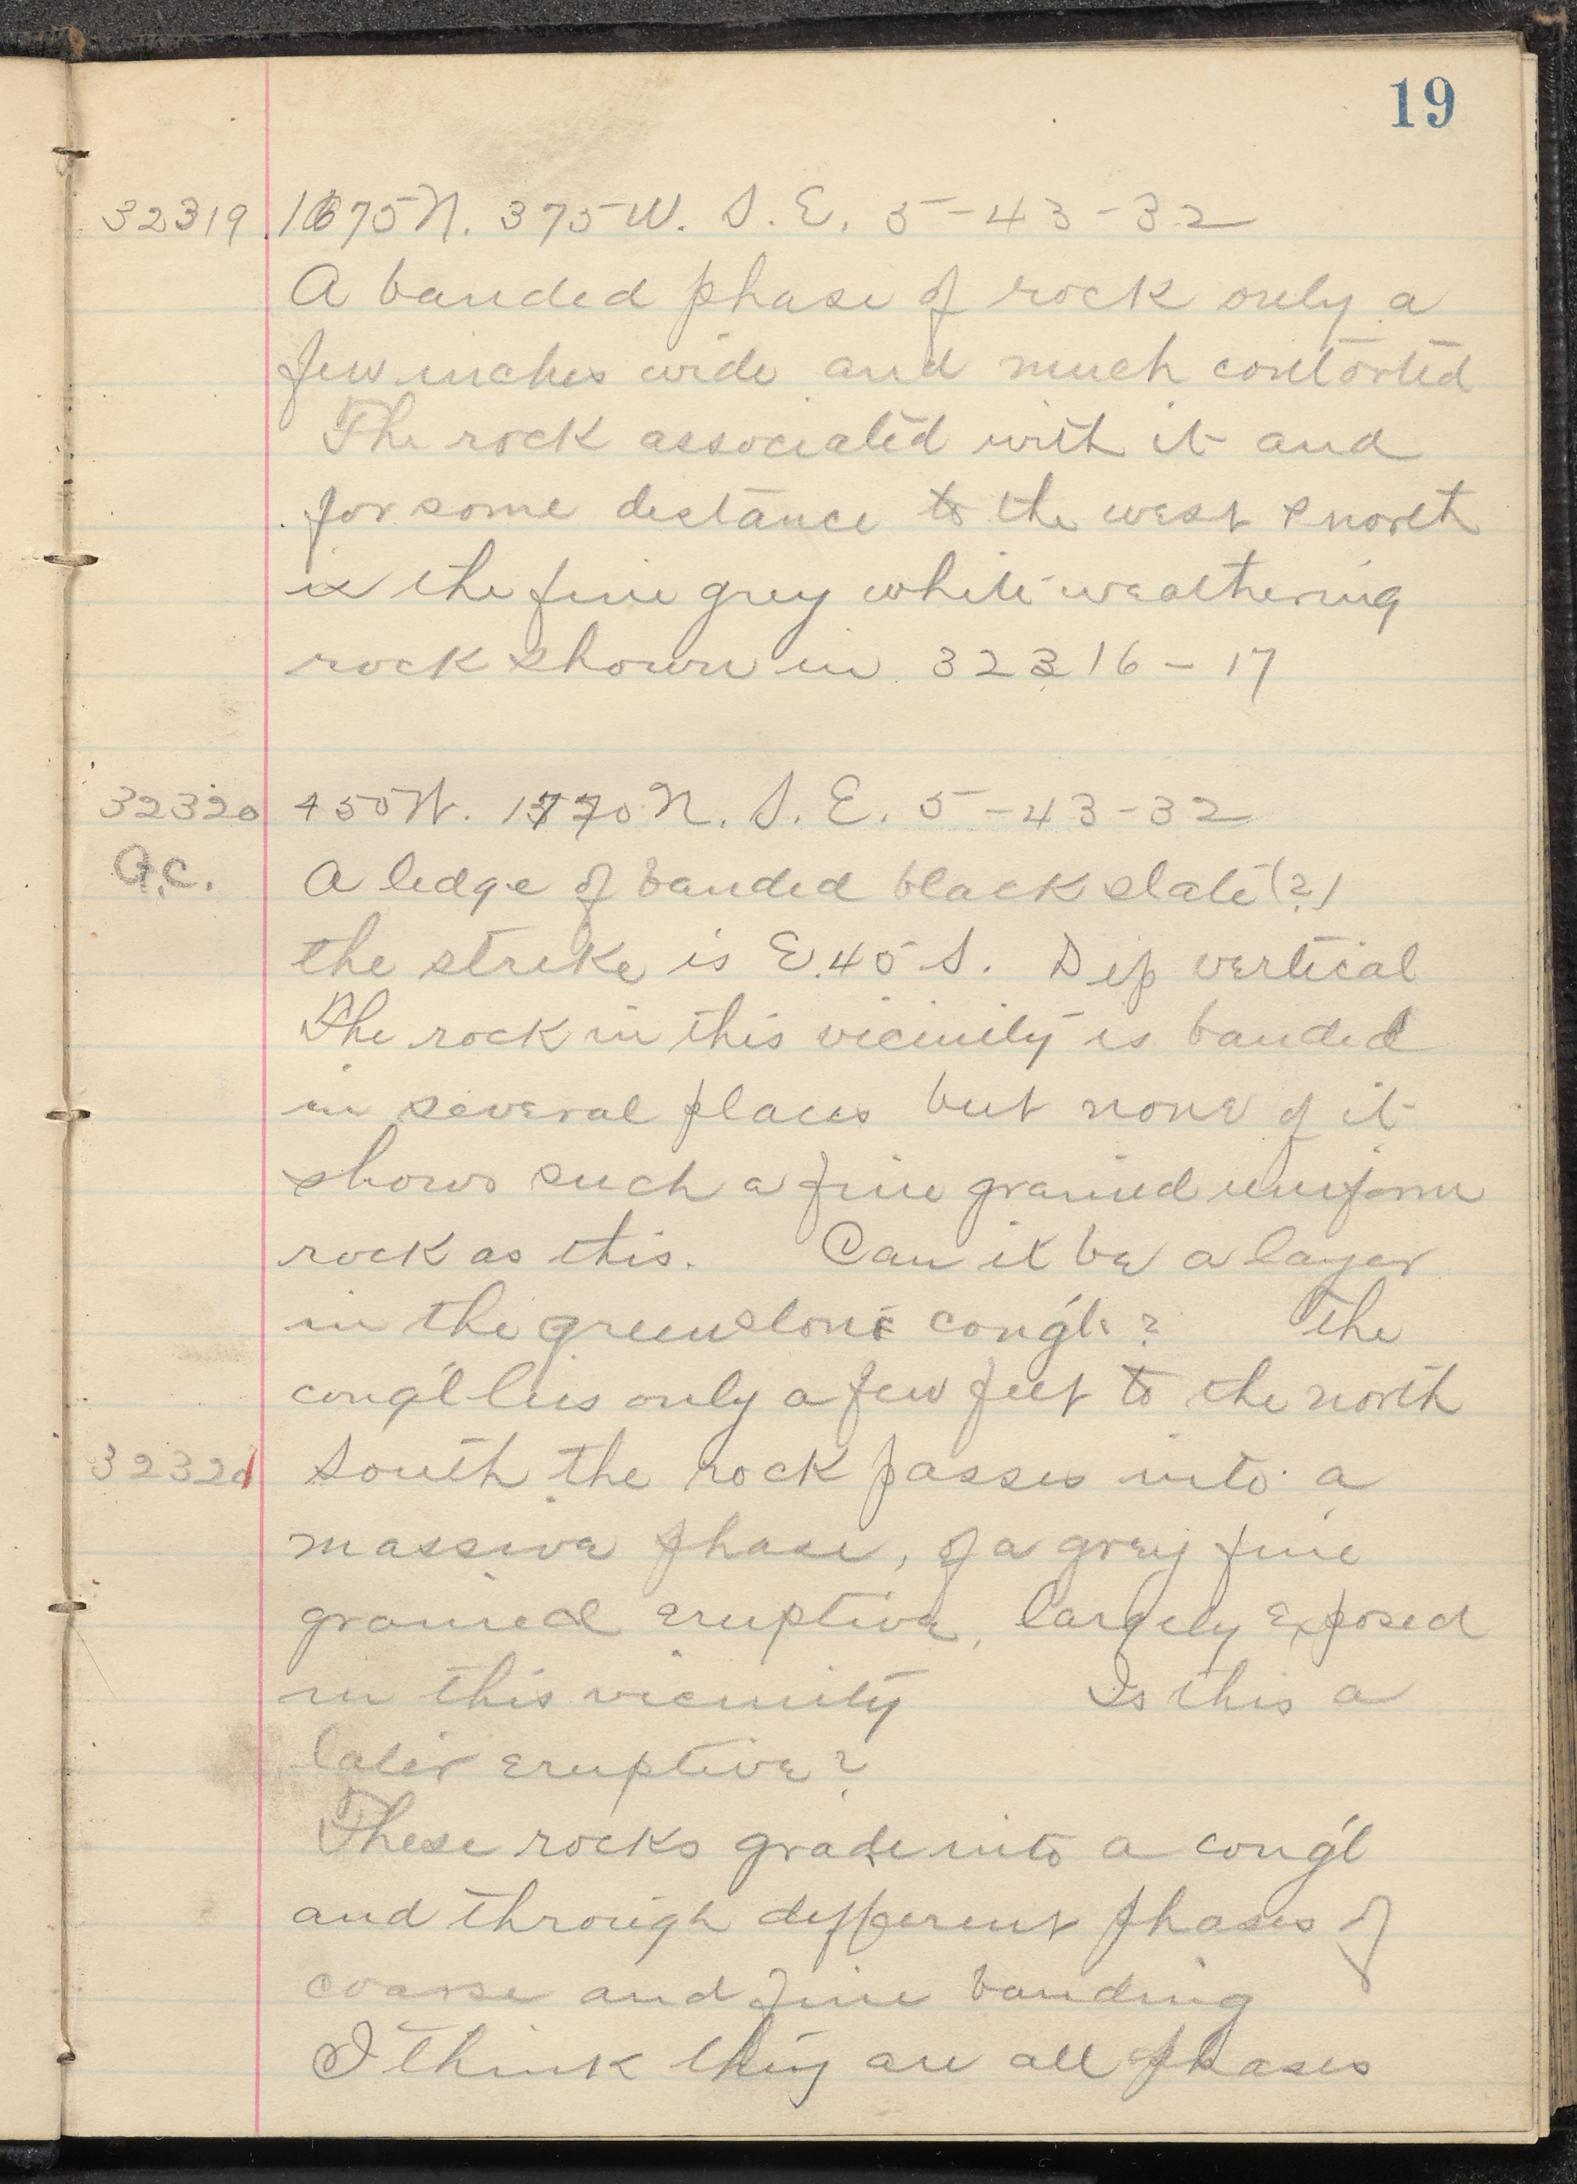 19
32319 1675 N. 375 W. S. E. 5-43-32
A banded phase of rock only a
few inches wide and much contorted
The rock associated with it and
for some distance to the west & north
is the fine grey white weathering
rock shown in 32316-17
32320 450 W. 1770 N. S. E. 5-43-32
A.C. A ledge of banded black slate (?)
the strike is E. 45 S. Dip vertical
The rock in this vicinity is banded
in several places but none of it
shows such a fine grained uniform
rock as this. Can it be a layer
in the greenstone congl. ? The
cong'l lies only a few feet to the north
32321 South the rock passes into a
massive phase, of a grey fine
grained eruptive, largely exposed
in this vicinity Is this a
later eruptive?
These rocks grade into a cong'l
and through different phases of
coarse and fine banding
I think they are all phases